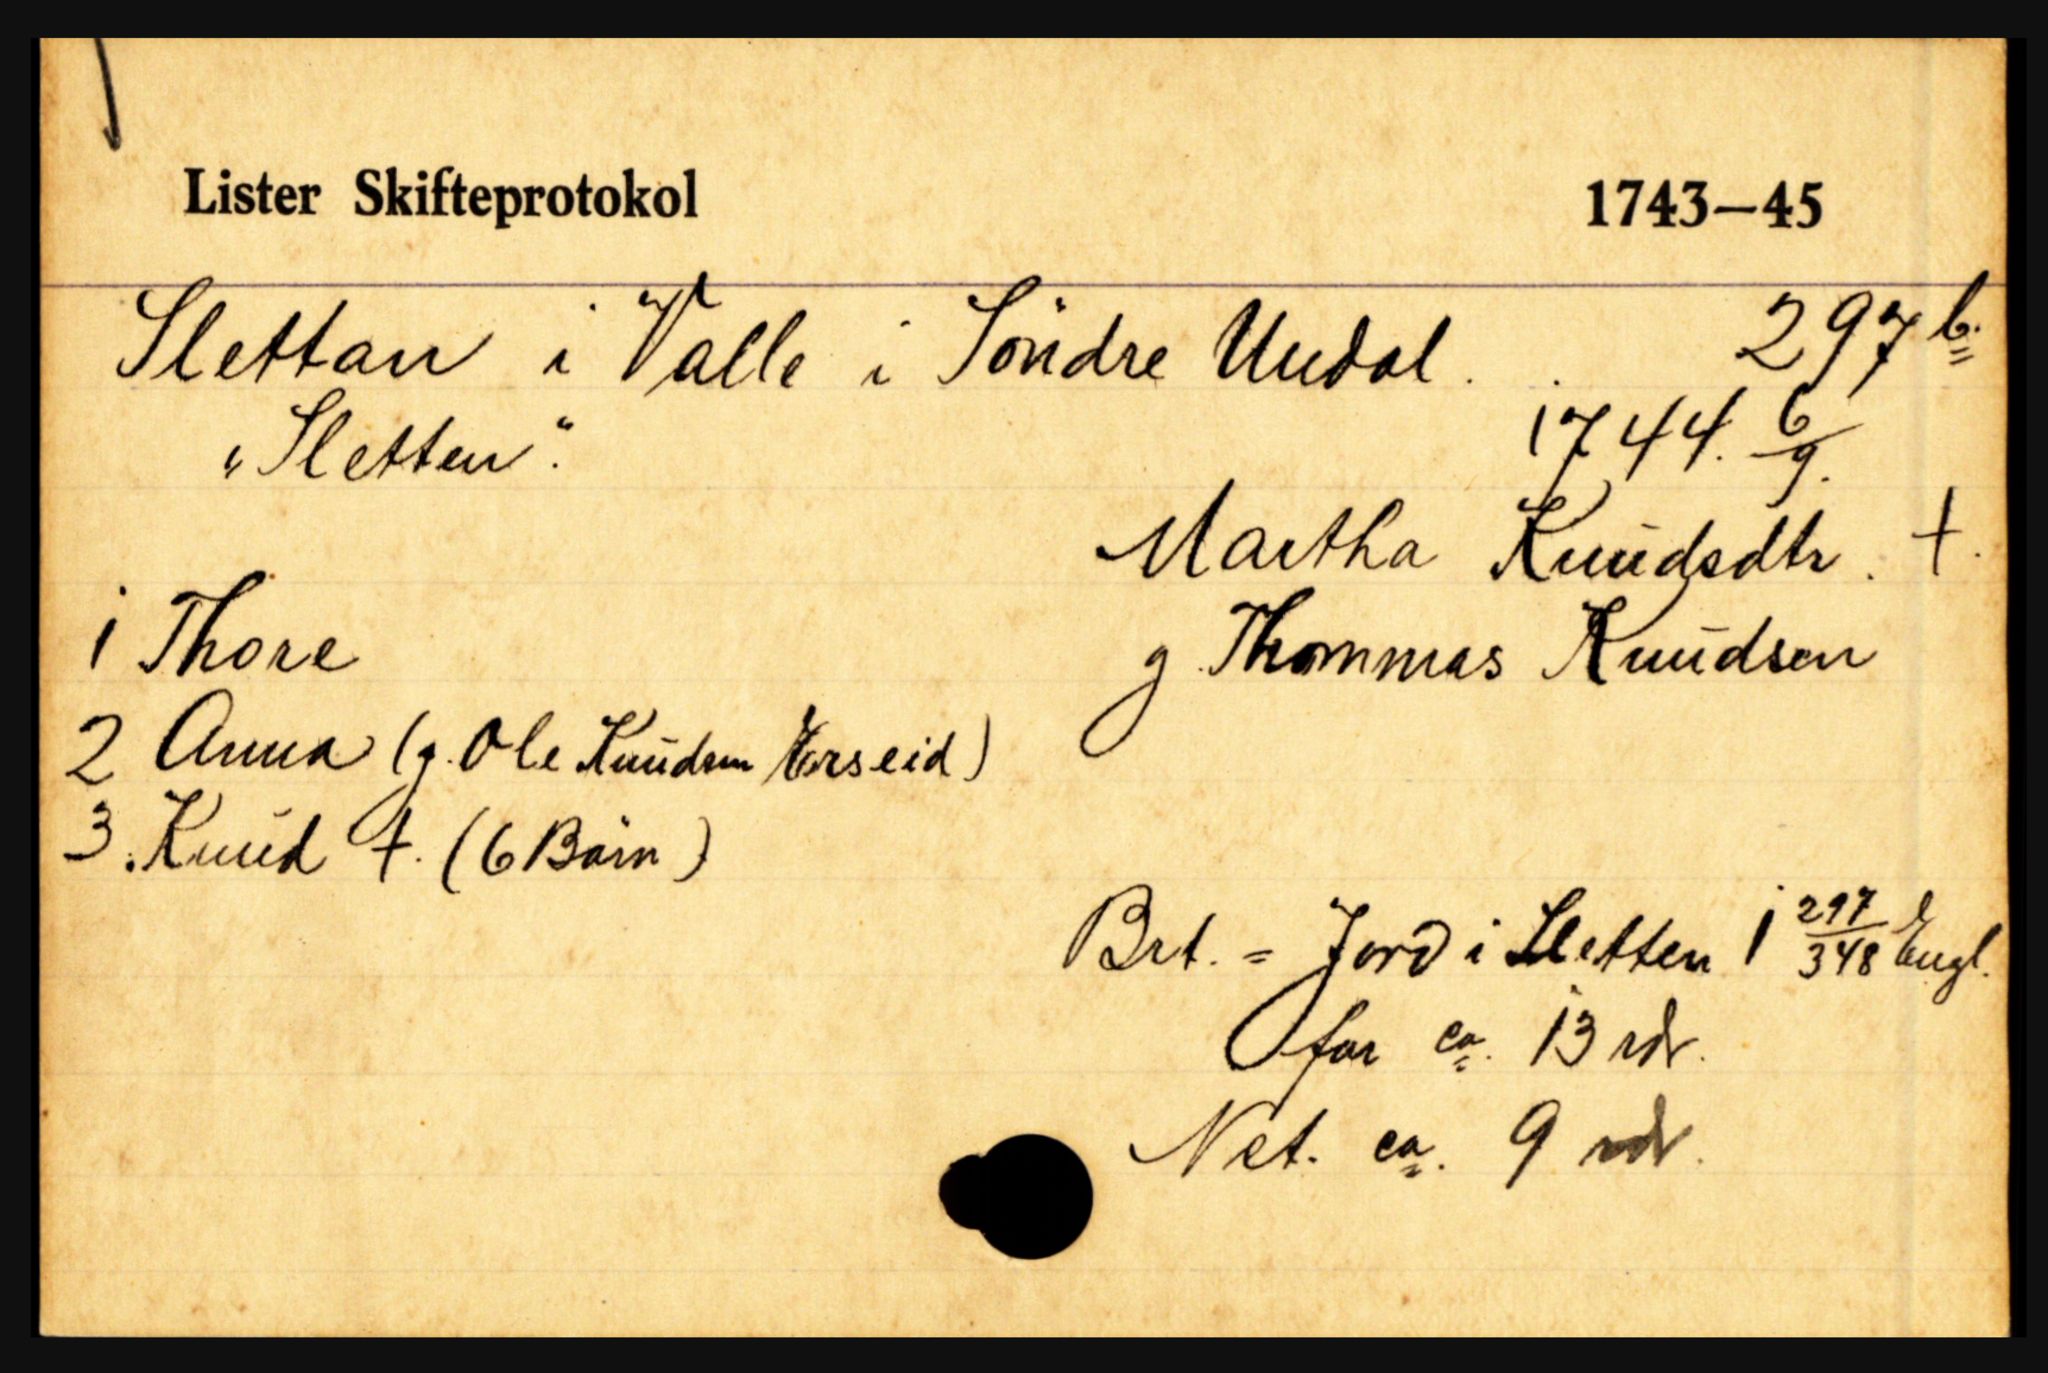 Lister Skifteprotokol 1743—45
Slettan i Valle i Söndre Undal. . 297 b.
"Sletten". 1744. 6/9.
Martha Knudsdtr. †.
1 Thore g. Thommas Knudsen
2 Anna (g. Ole Knudsen Vorseid)
3. Knud †. (6 Börn)
Brt. = Jord i Sletten 1 297/348 Engl.
for ca. 13 rdr.
Net. ca. 9 rdr.